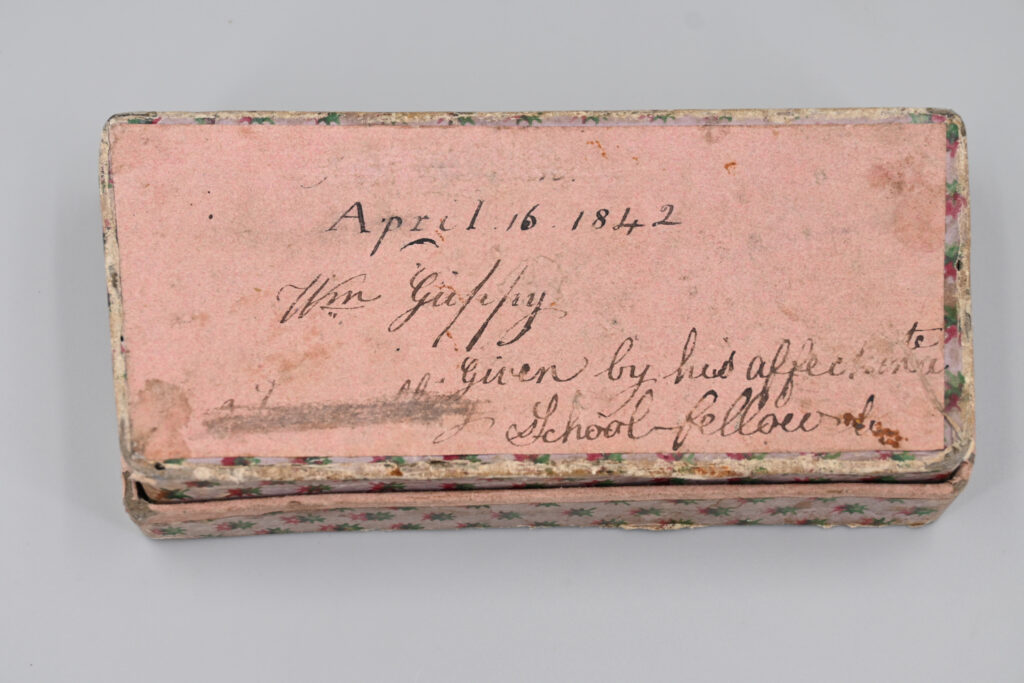 April 16 1842
Wm Guppy
Given by his affectionate
School-fellow